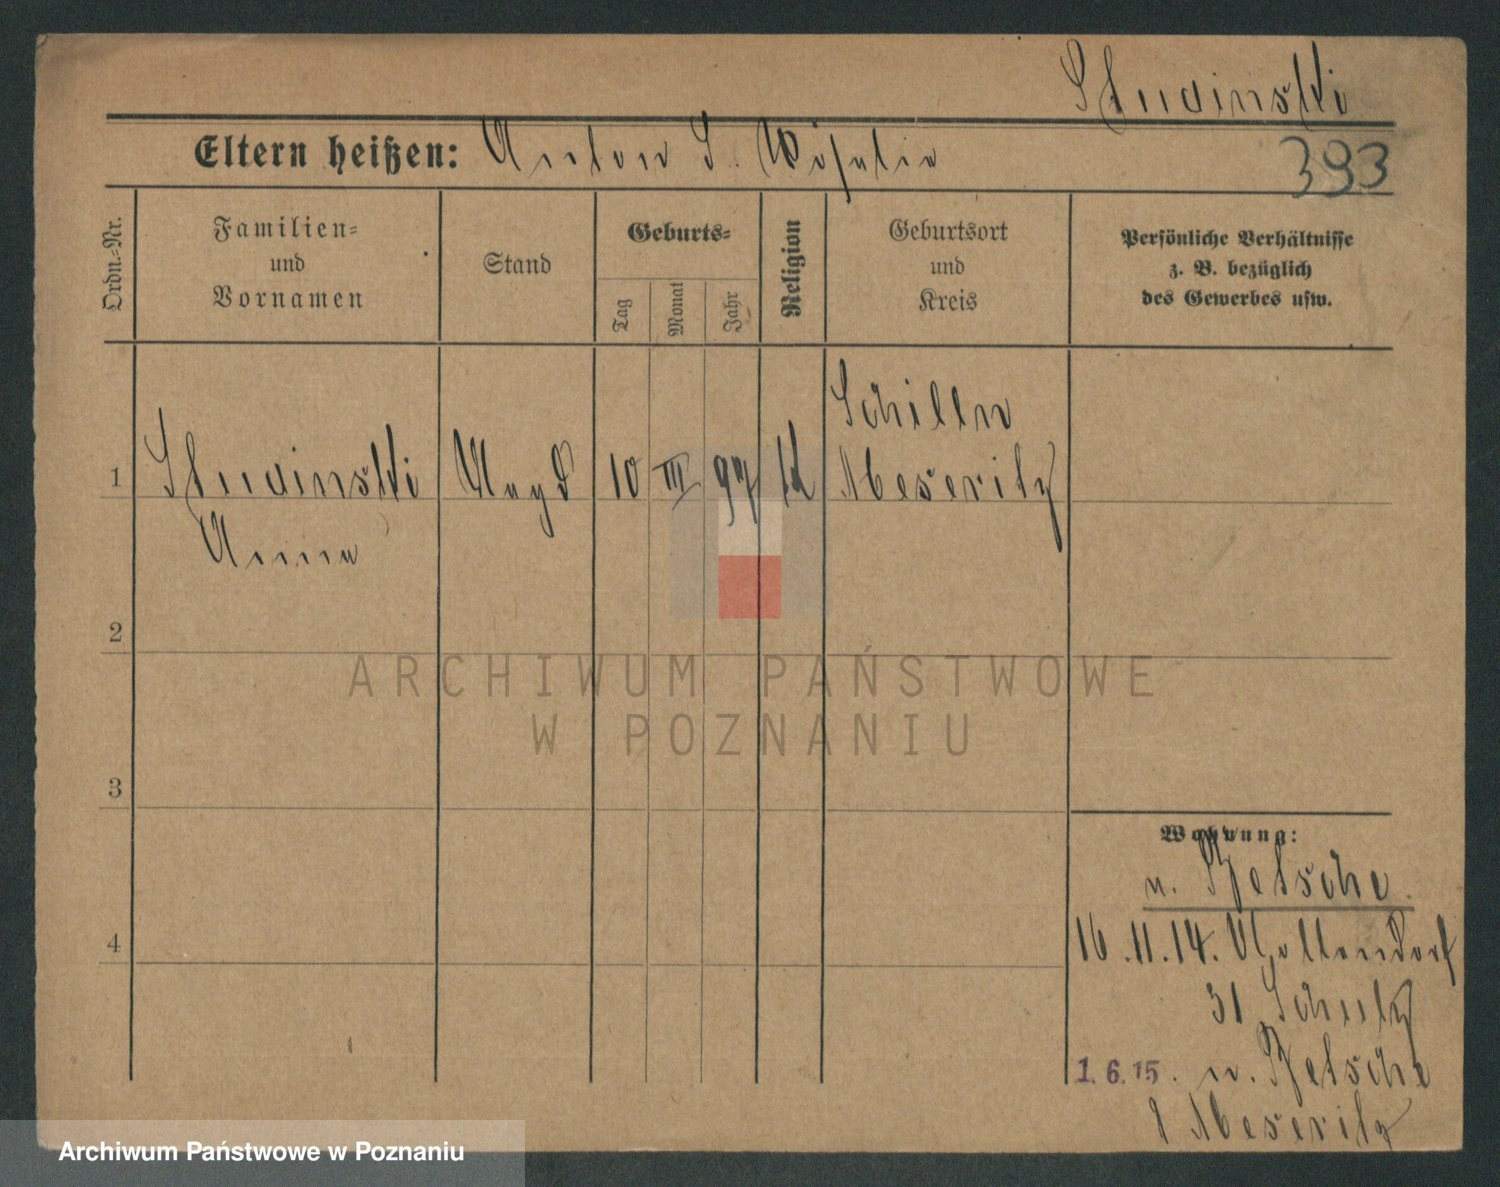 Studinski
Eltern heißen: Anton S.
393
Ordn.-Nr.
Familien-
und
Vornamen
Stand
Geburts-
Tag
Monat
Jahr
Religion
Geburtsort
und
Kreis
Persönliche Verhältnisse
z. B. bezüglich
des Gewerbes usw.
Schilln
1 Studinski Magd 10 III 97 k Meseritz
Anna
2
ARCHIWUM PAŃSTWOWE
W POZNANIU
3
Wohnung:
n. Betsche
4
16.11.14.
31 Schulz
1.6.15. n. Betsche
Meseritz
Archiwum Państwowe w Poznaniu